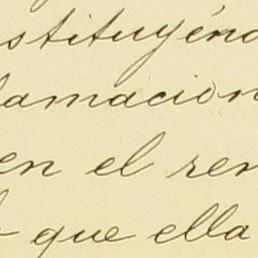 stituyéndo
lamacion
en el ren
que ella